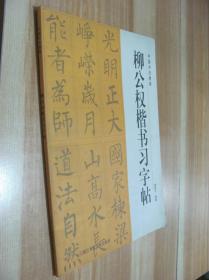 柳公权楷书习字帖
光明正大
峥嵘岁月
能者為師
國家棟梁
山高水長
道法自然